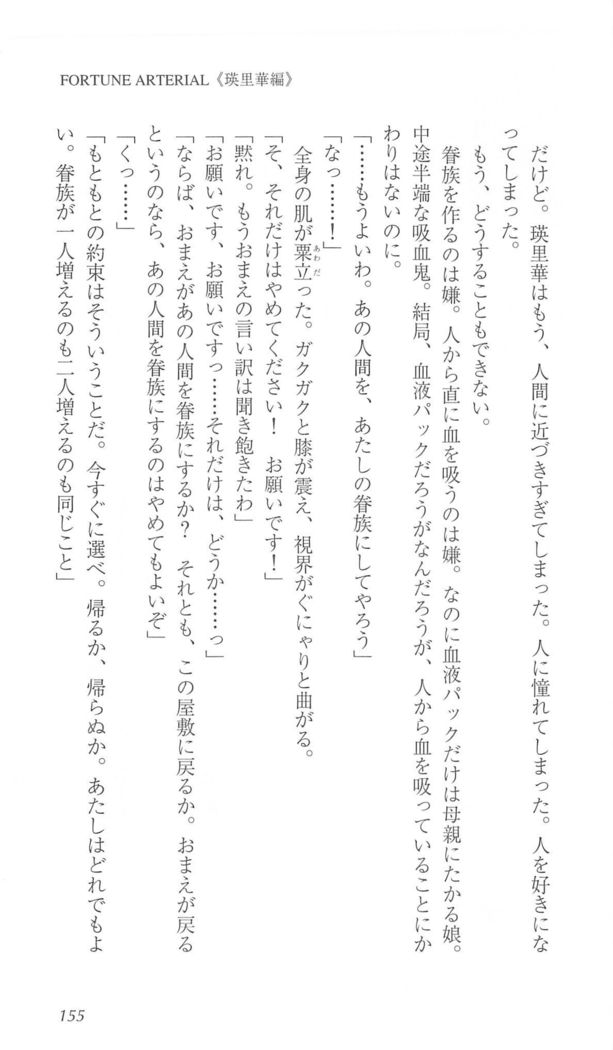 FORTUNE ARTERIAL《瑛里華編》
だけど。瑛里華はもう、人間に近づきすぎてしまった。人に憧れてしまった。人を好きにな
ってしまった。
もう、どうすることもできない。
眷族を作るのは嫌。人から直に血を吸うのは嫌。なのに血液パックだけは母親にたかる娘。
中途半端な吸血鬼。結局、血液パックだろうがなんだろうが、人から血を吸っていることにか
わりはないのに。
「……もうよいわ。あの人間を、あたしの眷族にしてやろう」
「なっ……！」
全身の肌が粟立った。ガクガクと膝が震え、視界がぐにゃりと曲がる。
「そ、それだけはやめてください！　お願いです！」
「黙れ。もうおまえの言い訳は聞き飽きたわ」
「お願いです、お願いですっ……それだけは、どうか……っ」
「ならば、おまえがあの人間を眷族にするか？　それとも、この屋敷に戻るか。おまえが戻る
というのなら、あの人間を眷族にするのはやめてもよいぞ」
「くっ……」
「もともとの約束はそういうことだ。今すぐに選べ。帰るか、帰らぬか。あたしはどれでもよ
い。眷族が一人増えるのも二人増えるのも同じこと」
155